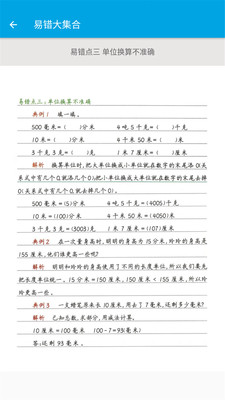 易错大集合
易错点三 单位换算不准确
易错点三:单位换算不准确
典例1 填一填。
500毫米=( )分米 4吨5千克=( )千克
10米=( )分米 4千米50米=( )米
3千克3克=( )克 1米7厘米=( )厘米
解析 换算单位时,把大单位换成小单位就在数字的末尾添0(关
系式中有几个0,就添几个0);把小单位换成大单位就在数字的末尾去掉
0(关系式中有几个0,就去掉几个0)。
500毫米=(5)分米 4吨5千克=(4005)千克
10米=(100)分米 4千米50米=(4050)米
3千克3克=(3003)克 1米7厘米=(107)厘米
典例2 在一次量身高时,明明的身高为15分米,玲玲的身高是
155厘米,他们谁更高一些呢?
解析 明明和玲玲的身高使用了不同的长度单位,所以我们要先
把长度单位统一。15分米=150厘米,150厘米<155厘米,所以玲
玲更高一些。
典例3 一支蜡笔原来长10厘米,用去了7毫米,还剩多少毫米?
解析 已知总数,求部分,用减法计算。
10厘米=100毫米 100-7=93(毫米)
答:还剩93毫米。